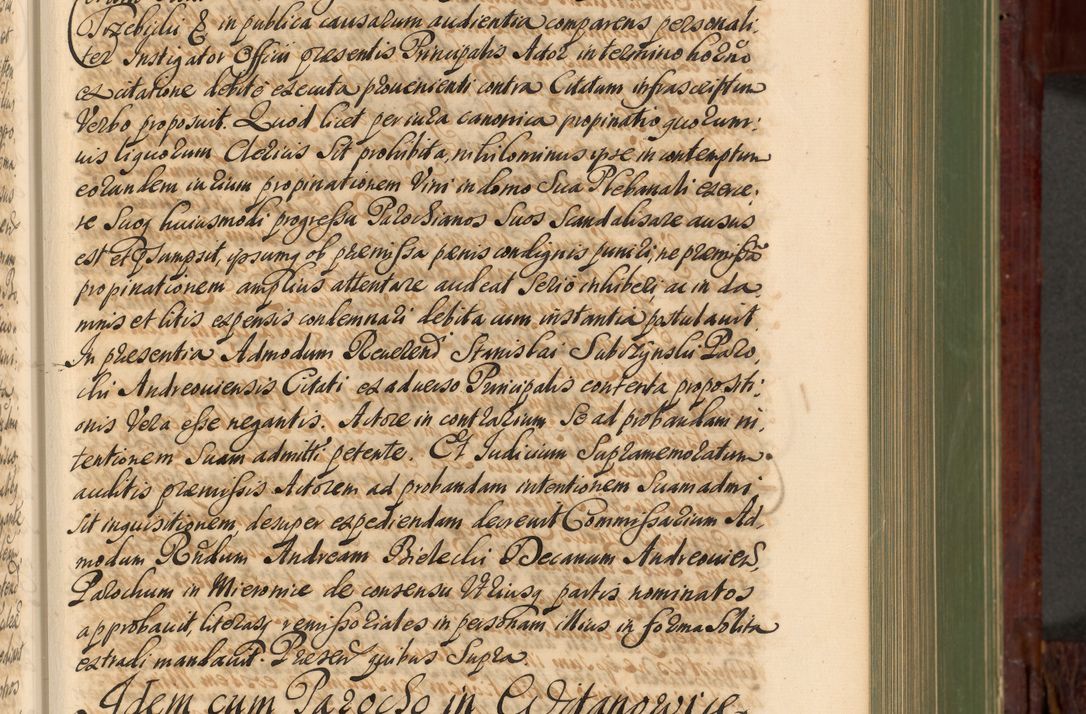 Trzebiclii & in publica causarum audientia comparens personali,
ter Instigator Officii presentis Principalis Actor in termino horno
ex citatione debite executa proveniente contra Citatum infrascriptum
Verbo proposuit. Quod licet per iura canonica propinatio quorum,
vis liquorum Clericis sit prohibita, nihilominus ipse in contemptum
eorundem iurium propinationem Vini in domo Sua Plebanali exerce,
re Suoq huiusmodi progressu Parochianos Suos Scandalisare ausus
est et Psumpsit, ipsumq ob premissa penis condignis puniri, ne premissã
propinationem amplius attentare audeat Serio inhiberi, ac in da
mnis et litis expensis condemnari debita cum instantia postulavit.
In presentia Admodum Reverend Stanislai Subrzynslii Paro,
chi Andreoviensis Citati ex adverso Principalis contenta propositi,
onis Vera esse negantis. Actore in contrarium Se ad probandam in,
tentionem Suam admitti petente. Et Iudicium Supramemoratum
auditis premissis Actorem ad probandam intentionem Suam admi,
sit inquisitionem, desuper expediendam decrevit Commissarium Ad,
modum Rndum Andream Bieleclii Decanum Andreovien,
Parochum in Mieronice de consensu Utriusq partis nominatos
approbavit, literasq remissoriales in personam illius in forma Solita
extradi mandavit. Presen quibus Supra.
Idem cum Parocho in